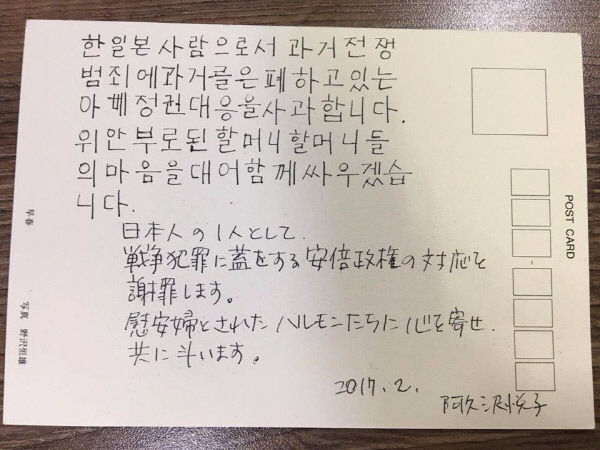 한일본사람으로서 과거전쟁
범죄에과거를은폐하고있는
아베정권대응을사과합니다.
위안부로된할머니할머니들
의마음을대어함께싸우겠습
니다.
日本人の1人として.
戦争犯罪に蓋をする安倍政権の対応を
謝罪します。
慰安婦とされたハルモンたちに心を寄せ.
共に斗います。
2017.2.
阿久沢悦子
POST CARD
早春
写真 野沢恒雄